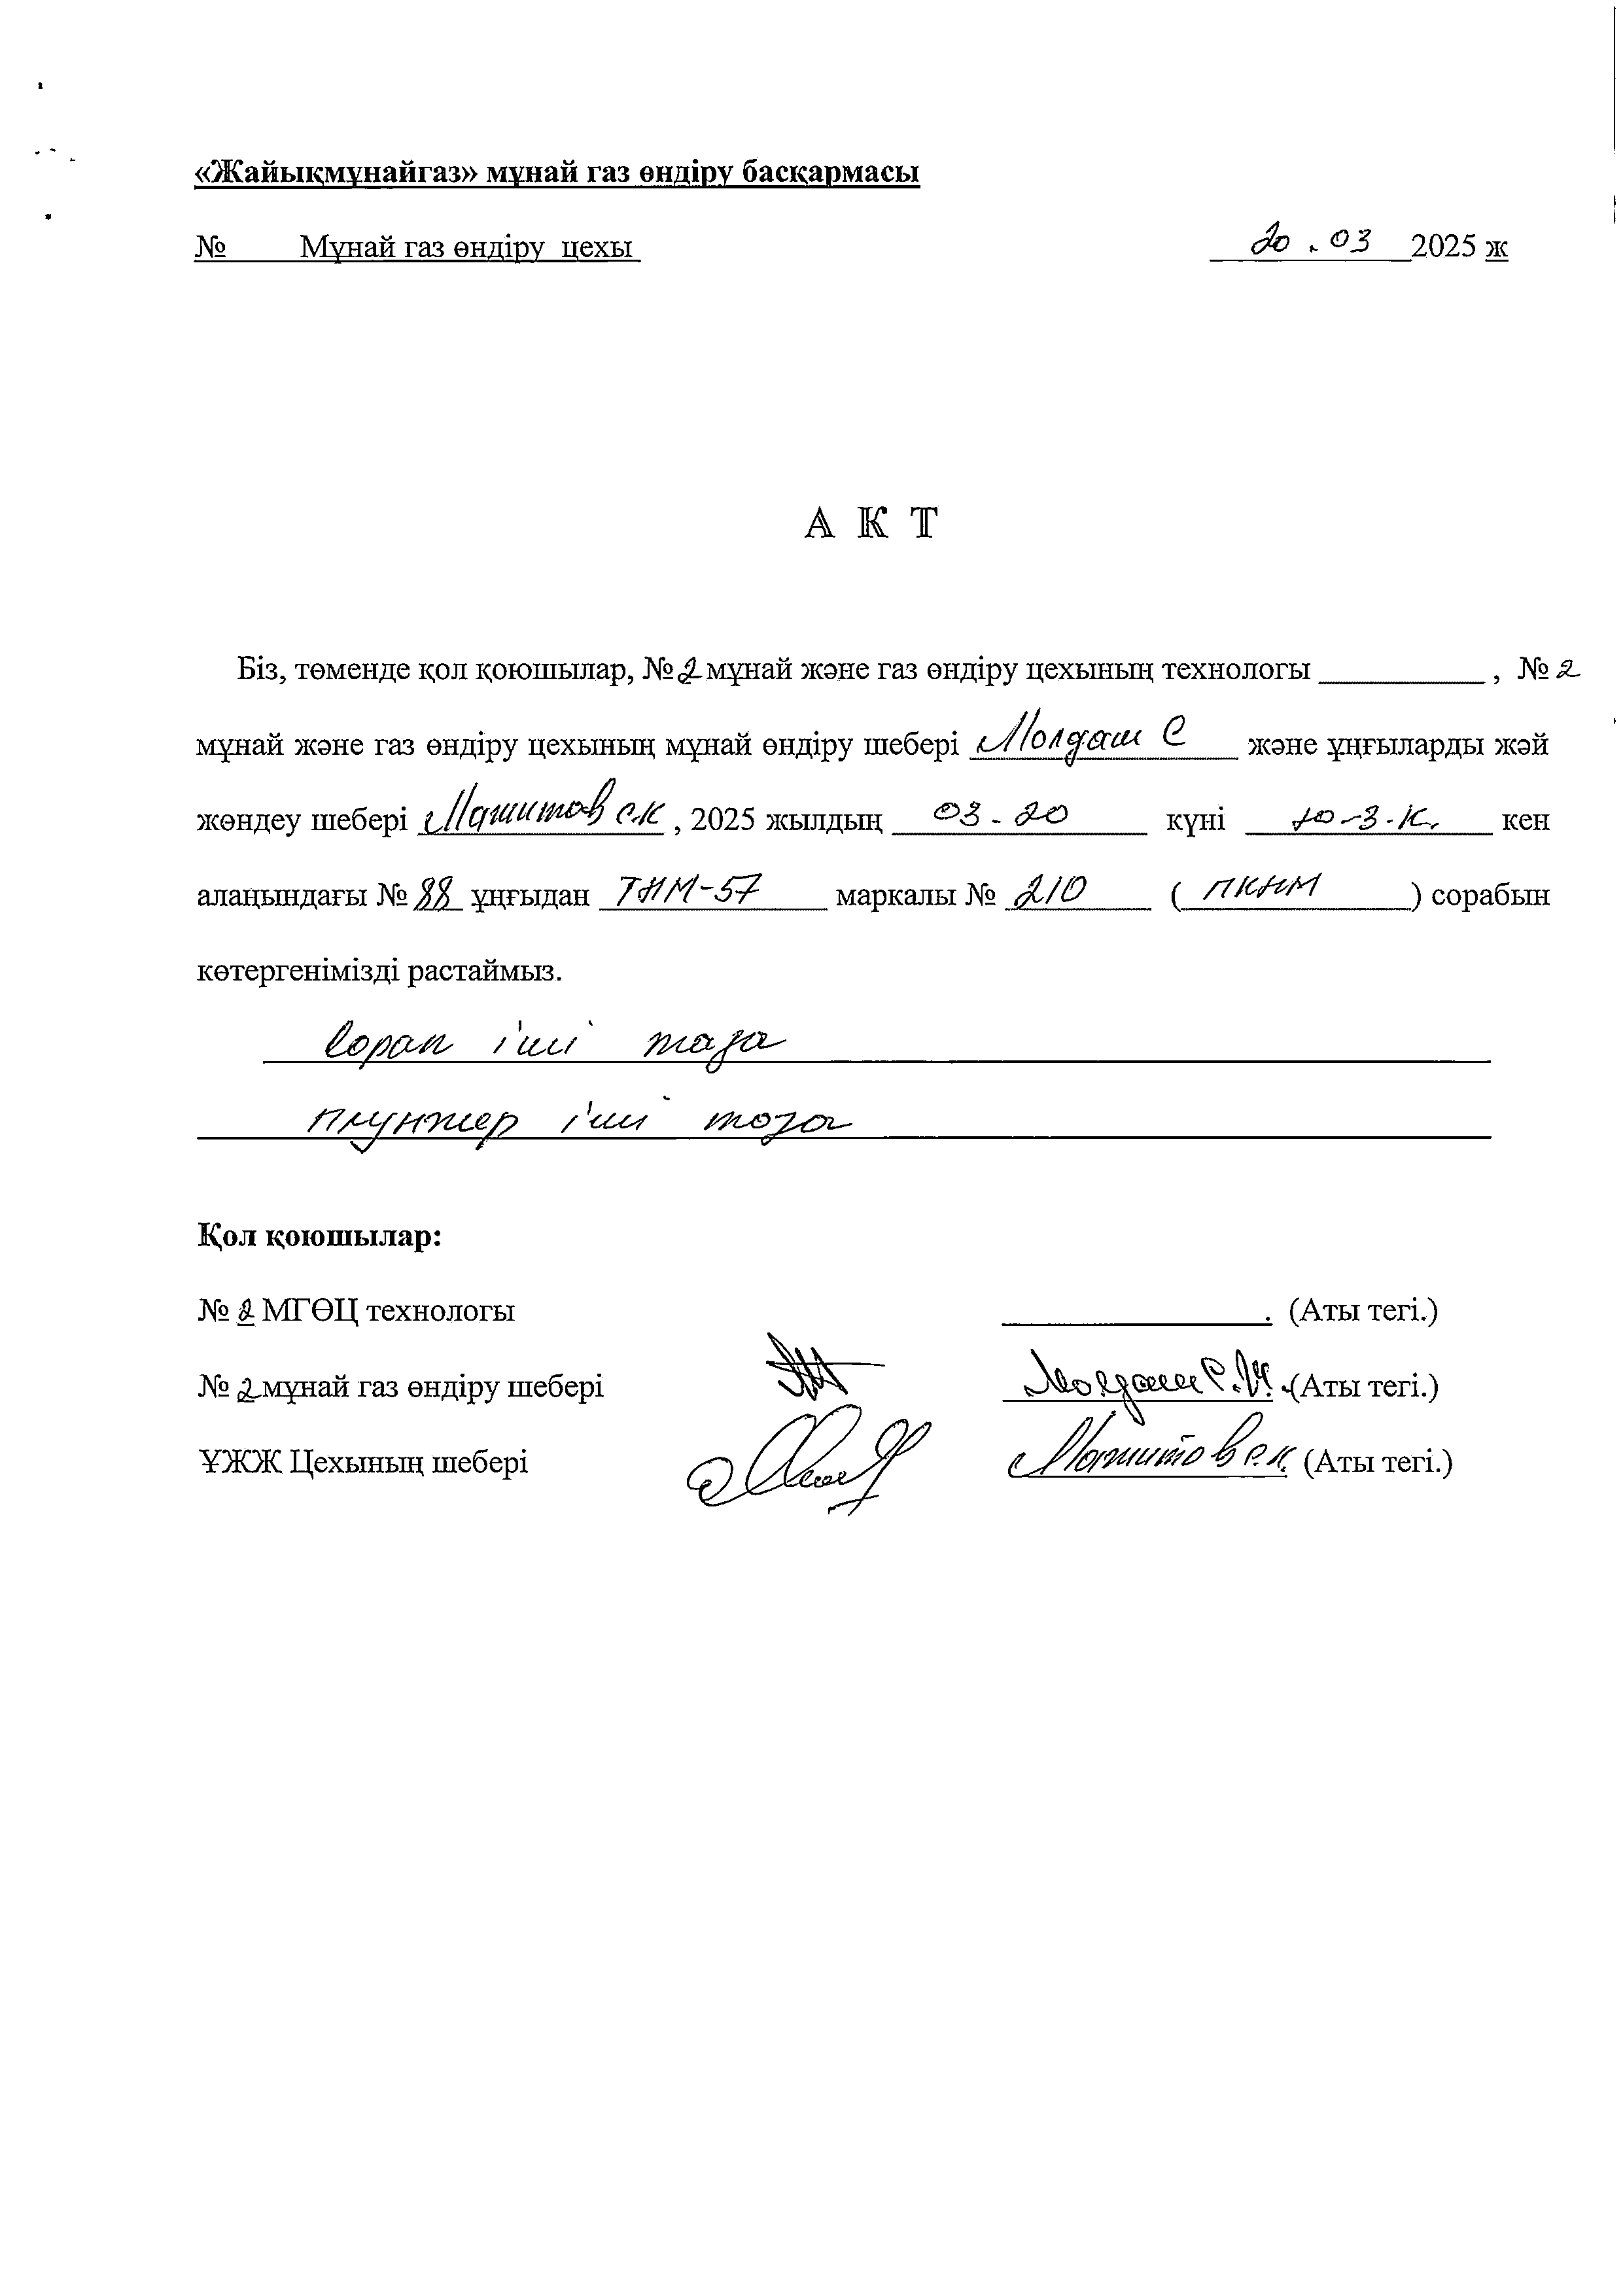 «Жайықмұнайгаз» мұнай газ өндіру басқармасы
№ Мұнай газ өндіру цехы 20.03 2025 ж
А К Т
Біз, төменде қол қоюшылар, №2 мұнай және газ өндіру цехының технологы __________ , № 2
мұнай және газ өндіру цехының мұнай өндіру шебері Молдаш С және ұңғыларды жәй
жөндеу шебері Машитов с.к , 2025 жылдың 03-20 күні ю-з-к. кен
алаңындағы № 88 ұңғыдан ТНМ-57 маркалы № 210 (ПКНМ) сорабын
көтергенімізді растаймыз.
Сорап іші таза
плунжер іші таза
Қол қоюшылар:
№ 2 МГӨЦ технологы . (Аты тегі.)
№ 2 мұнай газ өндіру шебері Молдаш С.М. (Аты тегі.)
ҰЖЖ Цехының шебері Машитов с.к. (Аты тегі.)